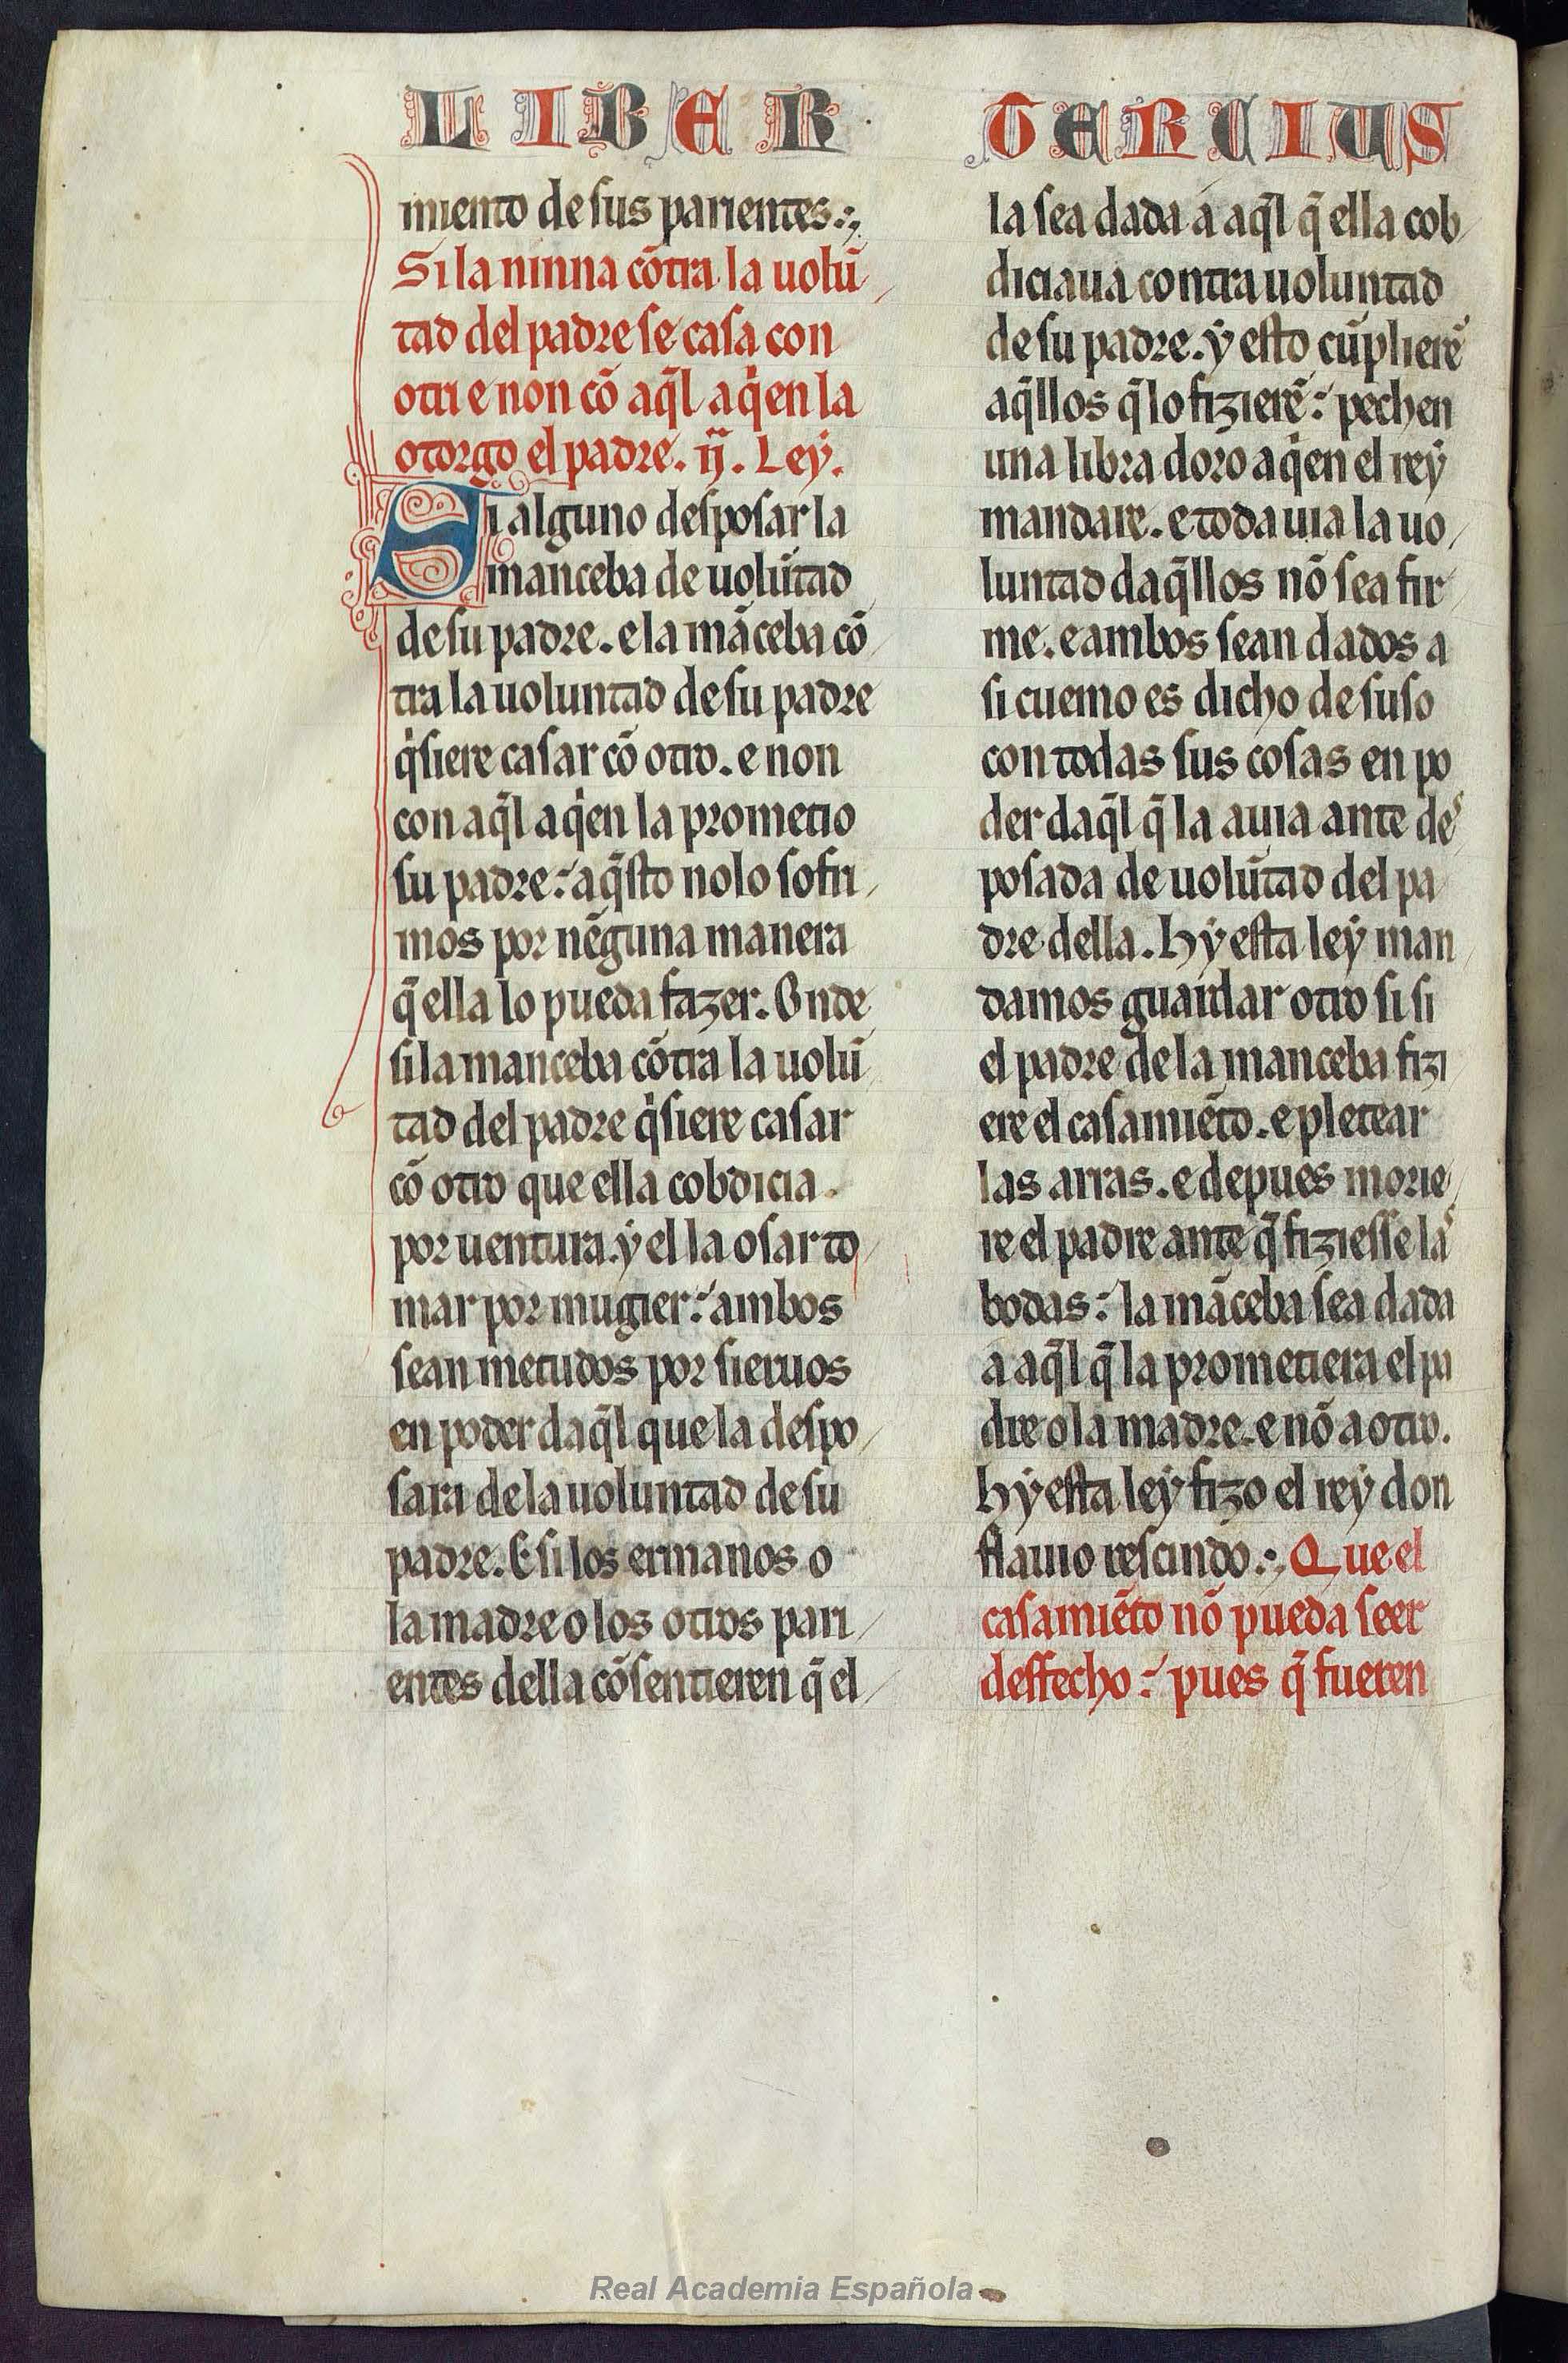 LIBER TERCIUS
miento de sus parientes.
Si la ninna cõtra la uolũ
tad del padre se casa con
otri e non cõ aq̃l a qien la
otorgo el padre. ij. Ley.
Si alguno desposar la
manceba de uolũtad
de su padre. e la mãceba cõ
tra la uoluntad de su padre
qisiere casar cõ otro. e non
con aq̃l a qien la prometio
su padre: aq̃sto no lo sofri
mos por nẽguna manera
q̃ ella lo pueda fazer. Onde
si la manceba cõtra la uolũ
tad del padre qisiere casar
cõ otro que ella cobdicia.
por uentura. ẏ el la osar to
mar por mugier: ambos
sean metudos por sieruos
en poder daq̃l que la despo
sara de la uoluntad de su
padre. E si los ermanos o
la madre o los otros pari
entes della cõsentieren q̃ el
la sea dada a aq̃l q̃ ella cob
diciaua contra uoluntad
de su padre. ẏ esto cũplierẽ
aq̃llos q̃ lo fizierẽ: pechen
una libra doro a qien el rey
mandare. e toda uia la uo
luntad daq̃llos nõ sea fir
me. e ambos sean dados a
si cuemo es dicho de suso
con todas sus cosas en po
der daq̃l q̃ la auia ante des
posada de uolũtad del pa
dre della. Hẏ esta leẏ man
damos guardar otro si si
el padre de la manceba fizi
ere el casamiẽto. e pletear
las arras. e depues morie
re el padre ante q̃ fiziesse las
bodas: la mãceba sea dada
a aq̃l q̃ la prometiera el pa
dre o la madre. e nõ a otro.
Hẏ esta leẏ fizo el reẏ don
flauio rescindo. Que el
casamiẽto nõ pueda seer
deffecho: pues q̃ fueren
Real Academia Española